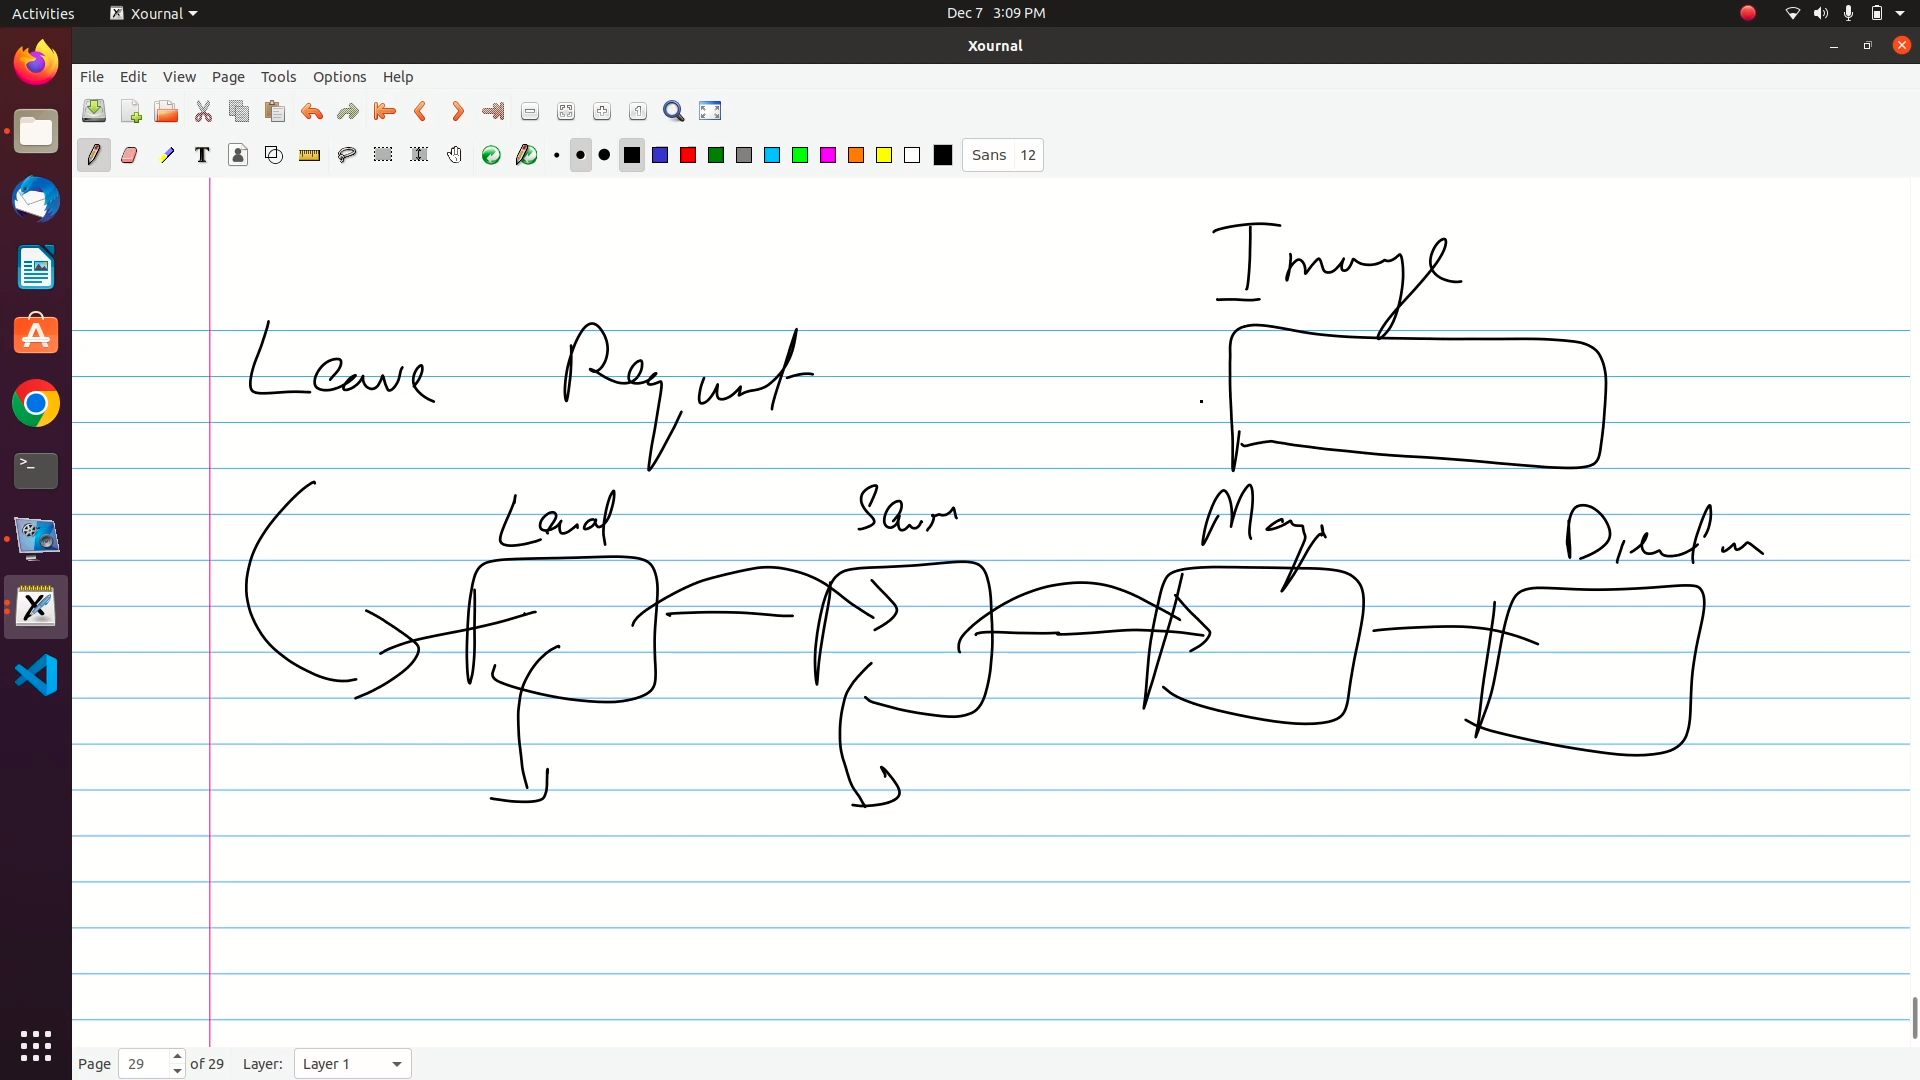 Activities Xournal Dec 7 3:09 PM
Xournal
File Edit View Page Tools Options Help
Sans 12
Image
Leave Request
Lead
Page 29 of 29 Layer: Layer 1